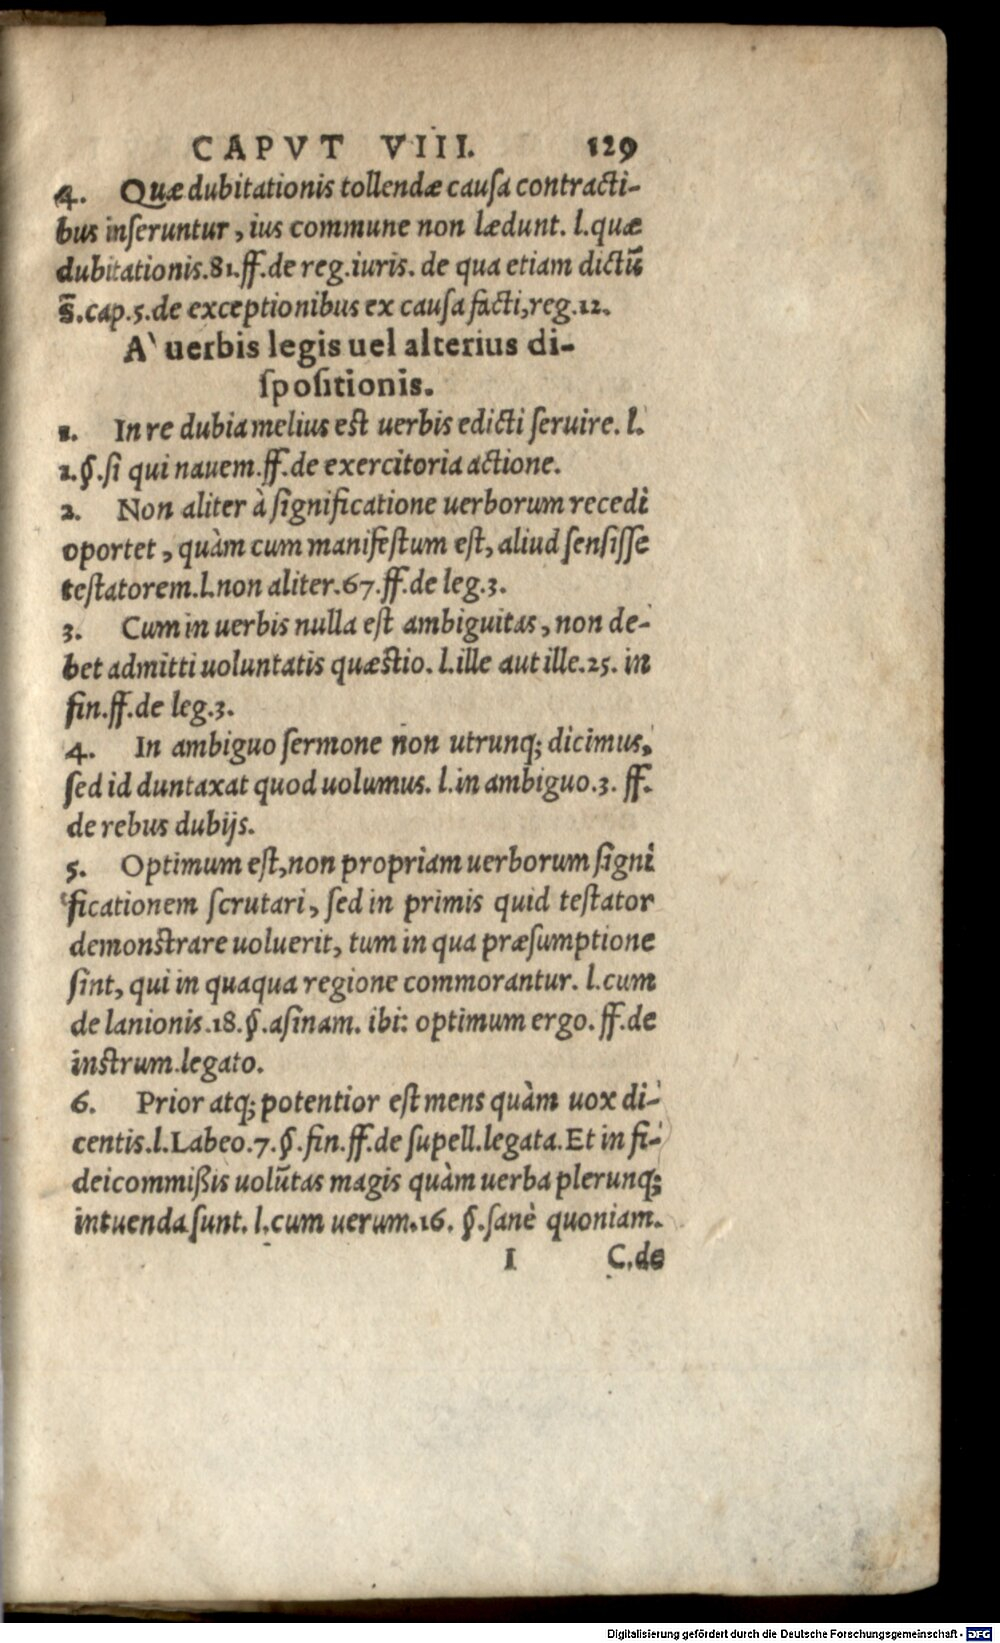 CAPVT VIII. 129
4. Quæ dubitationis tollendæ causa contracti-
bus inseruntur, ius commune non lædunt. l.quæ
dubitationis.81.ff.de reg.iuris. de qua etiam dictū
s̄.cap.5.de exceptionibus ex causa facti,reg.12.
A` uerbis legis uel alterius di-
spositionis.
1. In re dubia melius est uerbis edicti seruire. l.
1.§.si qui nauem.ff.de exercitoria actione.
2. Non aliter à significatione uerborum recedi
oportet, quàm cum manifestum est, aliud sensisse
testatorem.l.non aliter.67.ff.de leg.3.
3. Cum in uerbis nulla est ambiguitas, non de-
bet admitti uoluntatis quæstio. l.ille aut ille.25. in
fin.ff.de leg.3.
4. In ambiguo sermone non utrunq; dicimus,
sed id duntaxat quod uolumus. l.in ambiguo.3. ff.
de rebus dubijs.
5. Optimum est,non propriam uerborum signi
ficationem scrutari, sed in primis quid testator
demonstrare uoluerit, tum in qua præsumptione
sint, qui in quaqua regione commorantur. l.cum
de lanionis.18.§.asinam. ibi: optimum ergo. ff.de
instrum.legato.
6. Prior atq; potentior est mens quàm uox di-
centis.l.Labeo.7.§.fin.ff.de supell.legata.Et in fi-
deicommißis uolūtas magis quàm uerba plerunq;
intuenda sunt. l.cum uerum.16. §.sanè quoniam.
I C.de
Digitalisierung gefördert durch die Deutsche Forschungsgemeinschaft - DFG